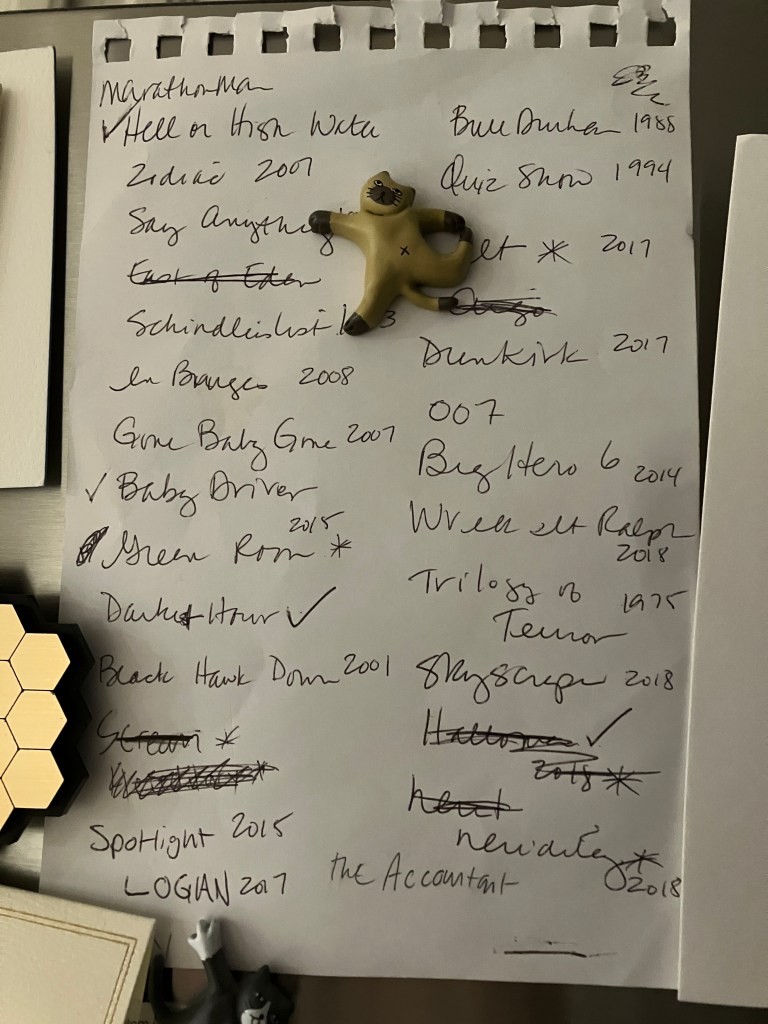 Marathon Man
✓ Hell or High Water
Zodiac 2007
Say Anything
East of Eden
Schindlers list 3
In Bruges 2008
Gone Baby Gone 2007
✓ Baby Driver
2015
Green Room *
Darkest Hour ✓
Black Hawk Down 2001
Scream *
Spotlight 2015
LOGAN 2017
Bull Durham 1988
Quiz Show 1994
lt * 2017
Dunkirk 2017
007
Big Hero 6 2014
Wreck it Ralph
2018
Trilogy of 1975
Terror
Skyscraper 2018
Halloween ✓
2018 *
hereditary *
2018
the Accountant